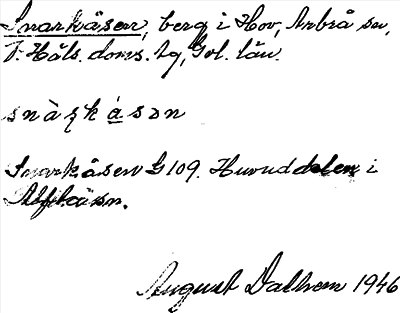 Snarkåsen, berg i Hov, Arbrå sn,
V. Häls. doms. tg, Gvl. län.
snàɽkásən
Snarkåsen G 109. Huvuddelen i
Alfta sn.
August Dalhem 1946